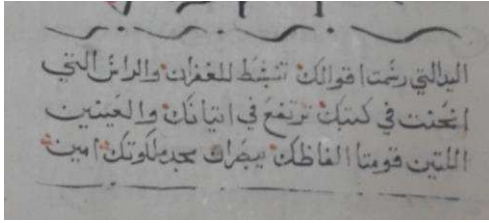 اليد التي رسمت اقوالك تنبسط للغفران والراس التي
انحنت في كتبك ترتفع في اتيانك والعينين
اللتين قومتا الفاظك يبصراك بمجد ملكوتك امين